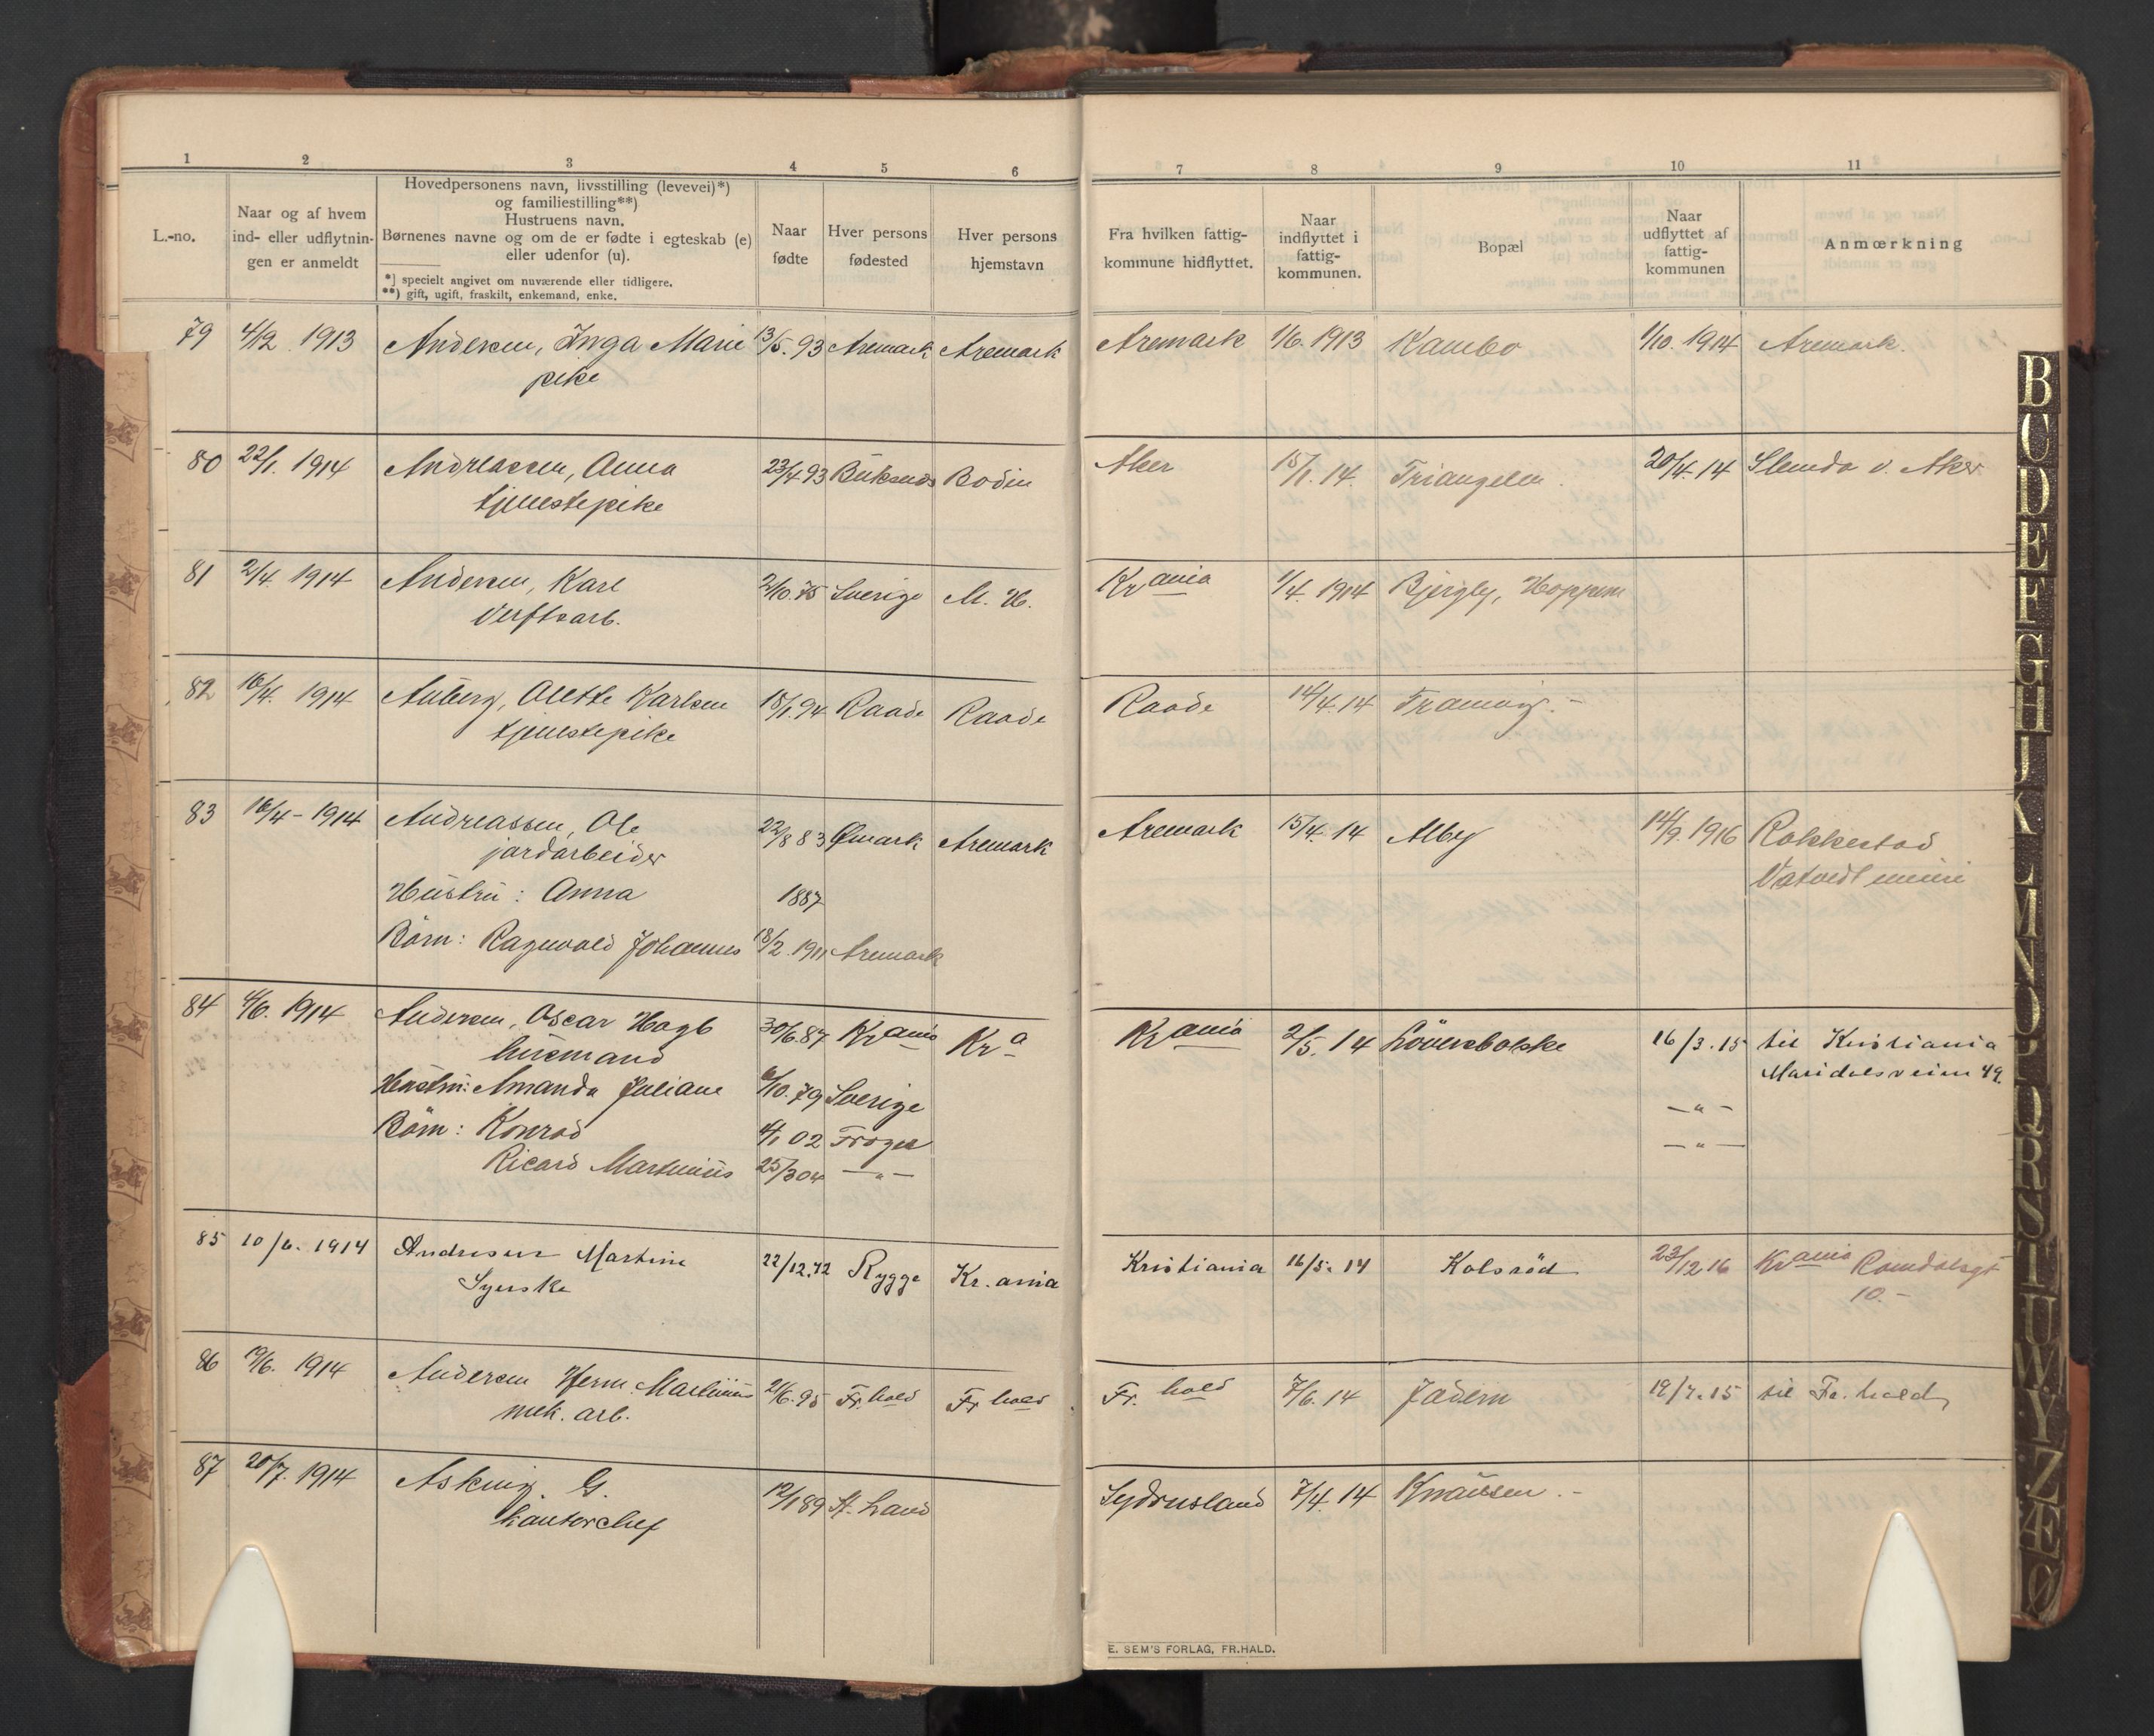 1 2 3 4 5 6 7 8 9 10 11
L.-no.
Naar og af hvem
ind- eller udflytnin-
gen er anmeldt
Hovedpersonens navn, livsstilling (levevei)*)
og familiestilling**)
Hustruens navn.
Børnenes navne og om de er fødte i egteskab (e)
eller udenfor (u).
*) specielt angivet om nuværende eller tidligere.
**) gift, ugift, fraskilt, enkemand, enke.
Naar
fødte
Hver persons
fødested
Hver persons
hjemstavn
Fra hvilken fattig-
kommune hidflyttet.
Naar
indflyttet i
fattig-
kommunen.
Bopæl
Naar
udflyttet af
fattig-
kommunen
Anmærkning
79 4/12 1913 Andersen, Inga Marie 13/5. 93 Aremark Aremark Aremark 1/6. 1913 Kambo 1/10. 1914 Aremark.
pike
80 22/1. 1914 Andreassen, Anna 23/4 93 Bodin Aker 15/1. 14. Triangelen. 20/4. 14 Slemda v. Aker
tjenestepike
81 2/4. 1914 Andersen, Karl 2/10. 75 Sverige M. H. Krania 1/4. 1914 Bjergby, Hoppern
Verftsarb.
82 16/4. 1914 Auberg, Olette Karlsen 15/1. 94 Raade Raade Raade 14/4. 14 -
tjenestepike
83 16/4 - 1914 Andreassen, Ole 22/8 83 Ømark Aremark Aremark 15/4. 14 Alby 14/9. 1916 Rakkestad
jordarbeider Vatvedt
Hustru: Anna 1887
Børn: Ragnvald Johannes 18/2. 1911 Aremark
84 4/6. 1914 Andersen, Oscar Hagb 30/6. 87 Krania Kra Krania 2/5. 14 16/3. 15 til Kristiania
husmand Maridalsveien 49.
Hustru: Amanda Juliane 6/10. 79 Sverige — " —
Børn: Konrad 4/1 02 Frogn — " —
Ricard Martinius 25/3 04 — " —
85 10/6. 1914 Andresen Martine 22/12. 72 Rygge Kr. ania Kristiania 16/5. 14 Kolsrød 23/12 16 Krania Romdalsgt
Syerske 10. -
86 19/6. 1914 Andersen Herm. Martinius 2/6. 95 Fr. hald Fr hald Fr. hald 7/6. 14 Jadern 19/7. 15 til Fr. hald
mek. arb.
87 20/7. 1914 Asking. G. 12/1 89 Lydrusland 7/4. 14 Knausen. -
kontorchef
E. SEM'S FORLAG, FR.HALD.
B
C
D
E
F
G
H
J
K
L
M
N
O
P
Q
R
S
T
U
W
Y
Z
Æ
Ø